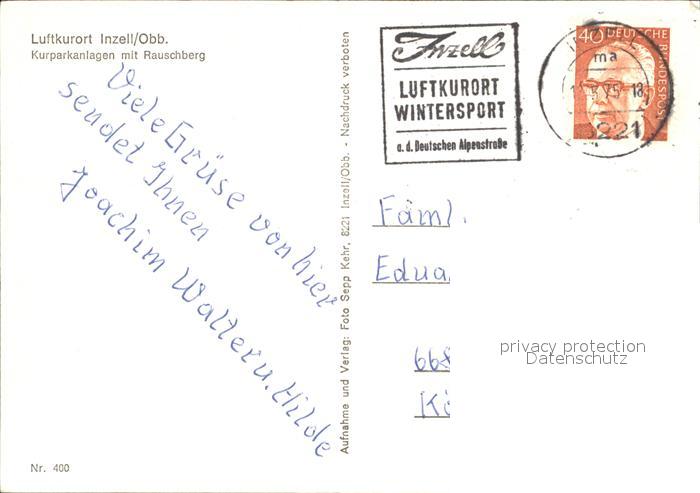 Luftkurort Inzell/Obb.
Kurparkanlagen mit Rauschberg
Viele Grüse von hier
sendet Ihnen
Joachim Walter u. Hilde
Nr. 400
Aufnahme und Verlag: Foto Sepp Kehr, 8221 Inzell/Obb. - Nachdruck verboten
Inzell
LUFTKURORT
WINTERSPORT
a. d. Deutschen Alpenstraße
ma
18
8221
40 DEUTSCHE BUNDESPOST
Faml.
Edua
668
Kö
privacy protection
Datenschutz